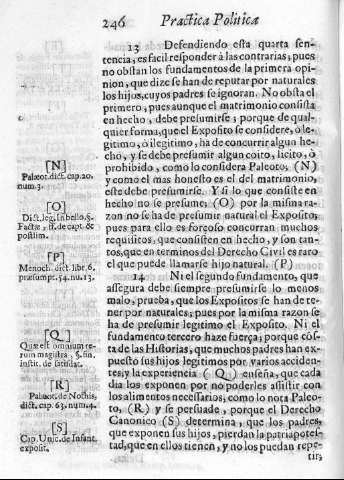 246 Practica Politica
13 Defendiendo esta quarta sen-
tencia, es facil responder à las contrarias; pues
no obstan los fundamentos de la primera opi-
nion, que dize se han de reputar por naturales
los hijos, cuyos padres se ignoran. No obsta el
primero, pues aunque el matrimonio consista
en hecho, debe presumirse; porque de qual-
quier forma, que el Exposito se considere, ò le-
gitimo, ò ilegitimo, ha de concurrir algun he-
cho, y se debe presumir algun coito, licito, ò
prohibido, como lo considera Paleoto, (N)
y como el mas honesto es el del matrimonio,
este debe presumirse. Y si lo que consiste en
hecho no se presume; (O) por la misma ra-
zon no se ha de presumir natural el Exposito;
pues para ello es forçoso concurran muchos
requisitos, que consisten en hecho, y son tan-
tos, que en terminos del Derecho Civil es raro
el que puede llamarse hijo natural. (P)
14 Ni el segundo fundamento, que
assegura debe siempre presumirse lo menos
malo, prueba, que los Expositos se han de te-
ner por naturales; pues por la misma razon se
ha de presumir legitimo el Exposito. Ni el
fundamento tercero haze fuerça; porque cons-
ta de las Historias, que muchos padres han ex-
puesto sus hijos legitimos por varios acciden-
tes, y la experiencia (Q) enseña, que cada
dia los exponen por no poderles assistir con
los alimentos necessarios, como lo nota Paleo-
to, (R) y se persuade, porque el Derecho
Canonico (S) determina, que los padres,
que exponen sus hijos, pierdan la patriapotes-
tad, que en ellos tienen, y no los puedan repe-
tir;
[N]
Palæot. dict. cap. 20.
num. 3.
[O]
Dict. leg. in bello, §.
Factæ, ff. de capt. &
postlim.
[P]
Menoch. dict. libr. 6.
præsumpt. 54. nu. 13.
[Q]
Quæ est omnium re-
rum magistra, §. fin.
instit. de satisdat.
[R]
Palæot. de Nothis,
dict. cap. 63. num. 4.
[S]
Cap. Unic. de Infant.
exposit.